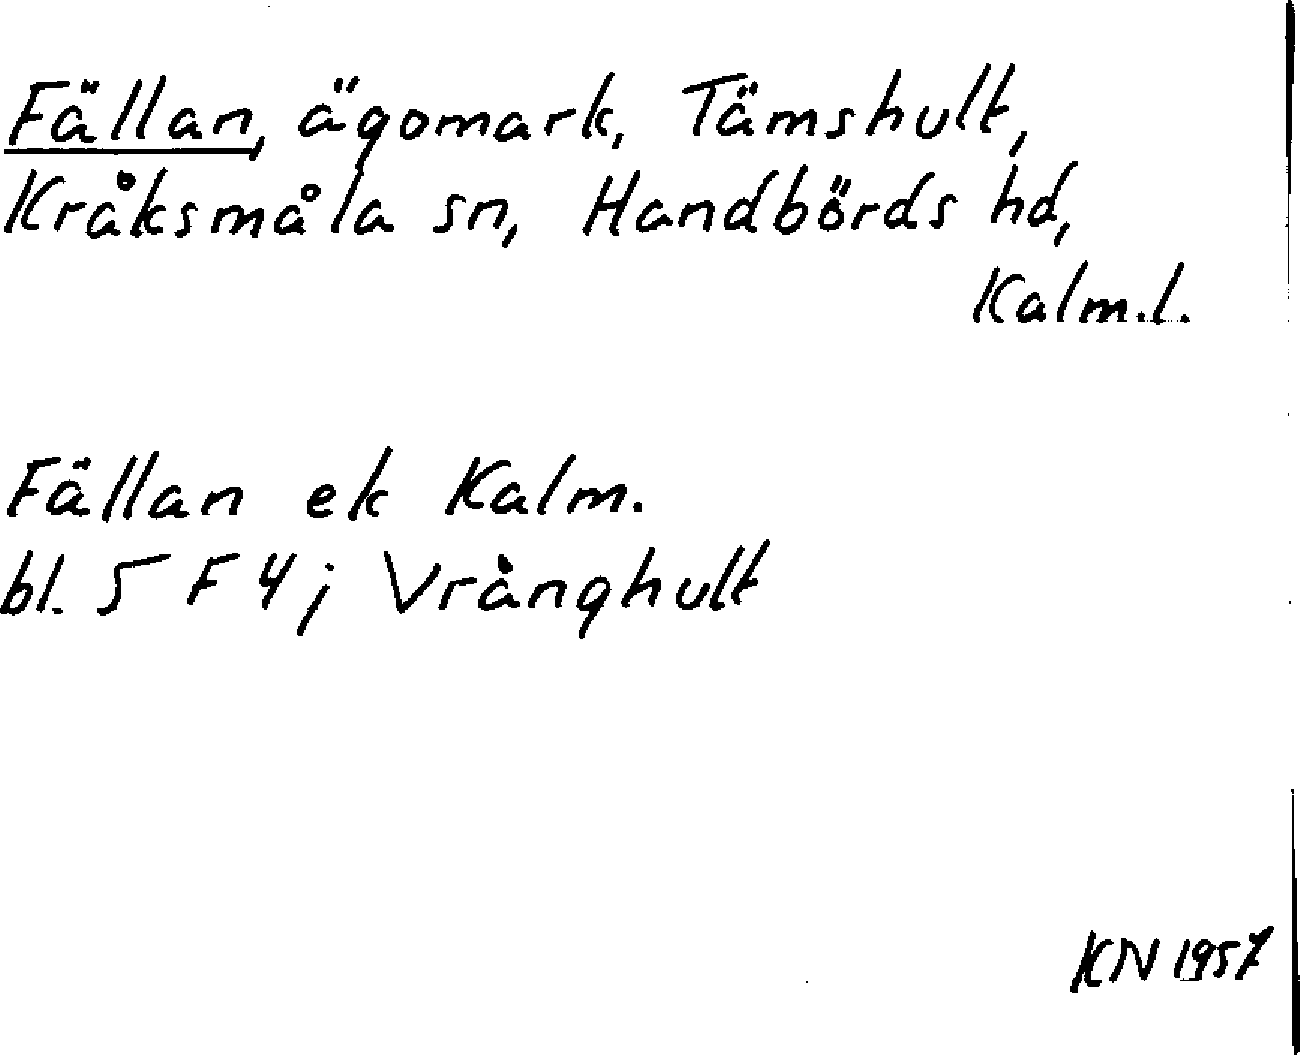 Fällan, ägomark, Tämshult,
Kråksmåla sn, Handbörds hd,
Kalm.l.
Fällan ek Kalm.
bl. 5 F 4; Vrånghult
KN 1957